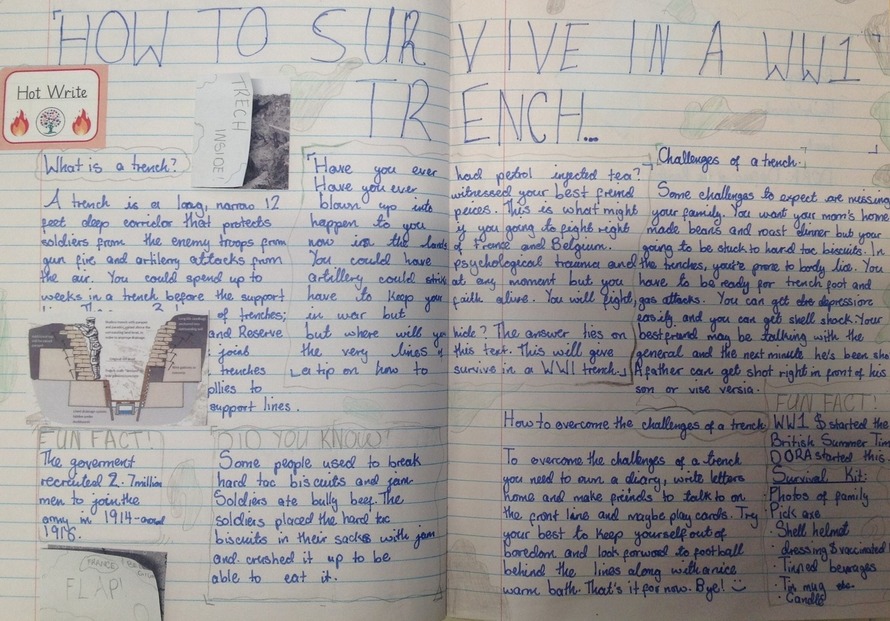 HOW TO SURVIVE IN A WW1
TRENCH...
Hot Write
TRECH
INSIDE!
What is a trench?
A trench is a long, narrow 12
feet deep corridor that protects
soldiers from the enemy troops from
gun fire and artilery attacks from
the air. You could spend up to
weeks in a trench before the support
of trenches;
and Reserve
joins
trenches
plies to
support lines.
FUN FACT!
The goverment
recruited 2.7million
men to join the
army in 1914-
1918.
FRANCE
FLAP!
Have you ever had petrol injected tea?
Have you ever witnessed your best freind
blown up into peices. This is what might
happen to you if you going to fight right
now in the lands of France and Belgium.
You could have psychological trauma and
artillery could strike at any moment but you
have to keep your faith alive. You will fight
in war but
but where will you hide? The answer ties on
the very lines of this text. This will give
La tip on how to survive in a WW1 trench.
DID YOU KNOW?
Some people used to break
hard tac biscuits and jam.
Soldiers ate bully beef. The
soldiers placed the hard tac
biscuits in their sacks with jam
and crushed it up to be
able to eat it.
Challenges of a trench.
Some challenges to expect are missing
your family. You want your mom's home
made beans and roast dinner but your
going to be stuck to hard tac biscuits. In
the trenches, you're prone to body lice. You
have to be ready for trench foot and
gas attacks. You can get depression
easily and you can get shell shock. Your
bestfreind may be talking with the
general and the next minute he's been sho
A father can get shot right in front of his
son or vise versia.
How to overcome the challenges of a trench
To overcome the challenges of a trench
you need to own a diary, write letters
home and make friends to talk to on
the front line and maybe play cards. Try
your best to keep yourself out of
boredom and look forward to football
behind the lines along with a nice
warm bath. That's it for now. Bye!
FUN FACT!
WW1 started the
British Summer Tim
DORA started this.
Survival Kit:
Photos of family
Pick axe
Shell helmet
dressing vaccinated
Tinned beverages
Tin mug etc.
Candle